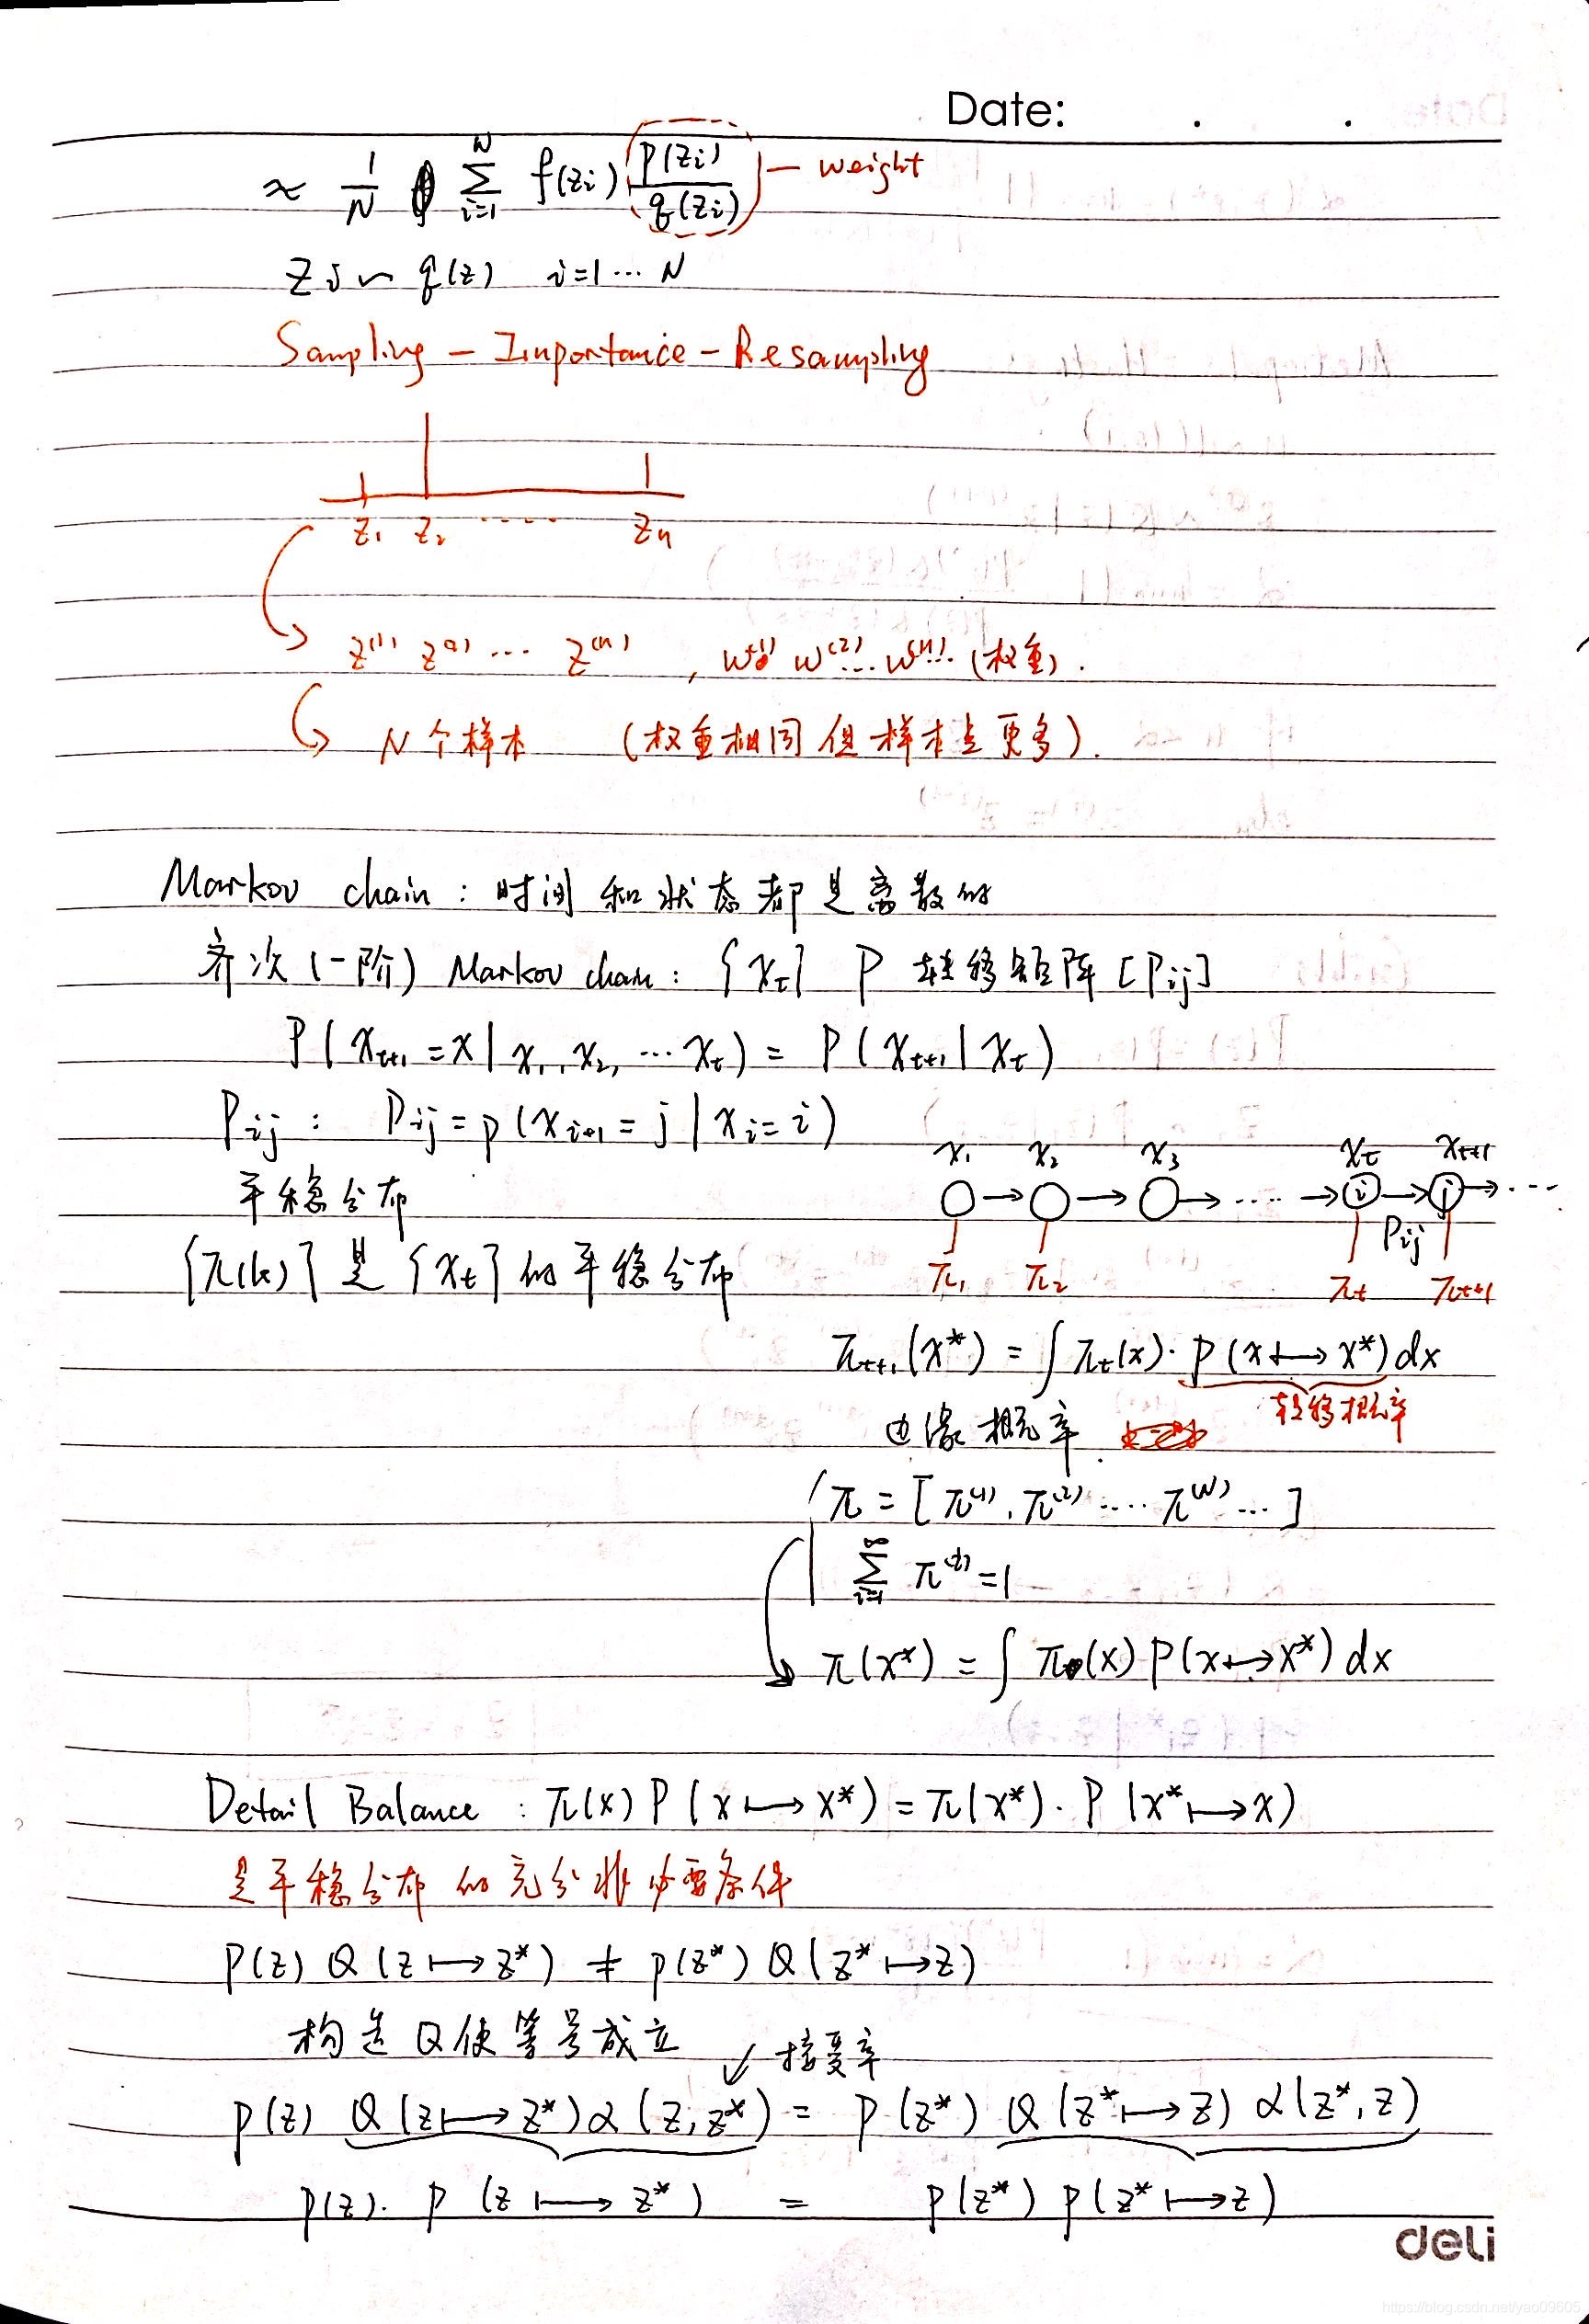 Date: . .
≈ 1/N ∑_{i=1}^{N} f(z_i) p(z_i)/q(z_i) — weight
z_i ~ q(z) i=1 ⋯ N
Sampling – Importance – Resampling
z_1 z_2 ⋯⋯ z_n
z^{(1)} z^{(2)} ⋯ z^{(n)} , w^{(1)} w^{(2)} ⋯ w^{(n)} ⋯ (权重).
N个样本 (权重相同但样本点更多).
Markov chain : 时间和状态都是离散的
齐次(一阶) Markov chain : {x_t} P 转移矩阵 [P_ij]
P(x_{t+1} = x | x_1, x_2, ⋯ x_t) = P(x_{t+1} | x_t)
P_ij : P_ij = p(x_{i+1} = j | x_i = i)
x_1 x_2 x_3 x_t x_{t+1}
平稳分布
→ → → ⋯⋯ → i → j → ⋯
P_ij
{π(k)} 是 {x_t} 的平稳分布
π_1 π_2 π_t π_{t+1}
π_{t+1}(x*) = ∫ π_t(x) · P(x ↦ x*) dx
转移概率
边缘概率.
π = [π^{(1)}, π^{(2)} ⋯⋯ π^{(N)} ⋯]
∑_{i=1}^{∞} π^{(i)} = 1
π(x*) = ∫ π(x) P(x ↦ x*) dx
Detail Balance : π(x) P(x ↦ x*) = π(x*) · P(x* ↦ x)
是平稳分布的充分非必要条件
P(z) Q(z ↦ z*) ≠ p(z*) Q(z* ↦ z)
构造Q使等号成立
↙ 接受率
p(z) Q(z ↦ z*) α(z, z*) = P(z*) Q(z* ↦ z) α(z*, z)
p(z). P(z ↦ z*) = P(z*) p(z* ↦ z)
deli
https://blog.csdn.net/yao09605